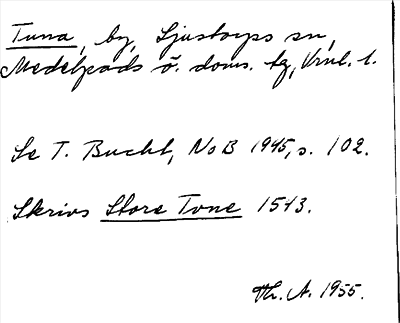 Tuna, by, Ljustorps sn,
Medelpads ö. doms. tg, Vnl. l.
Se T. Bucht, NoB 1945, s. 102.
Skrivs Store Tone 1543.
Th. A. 1955.